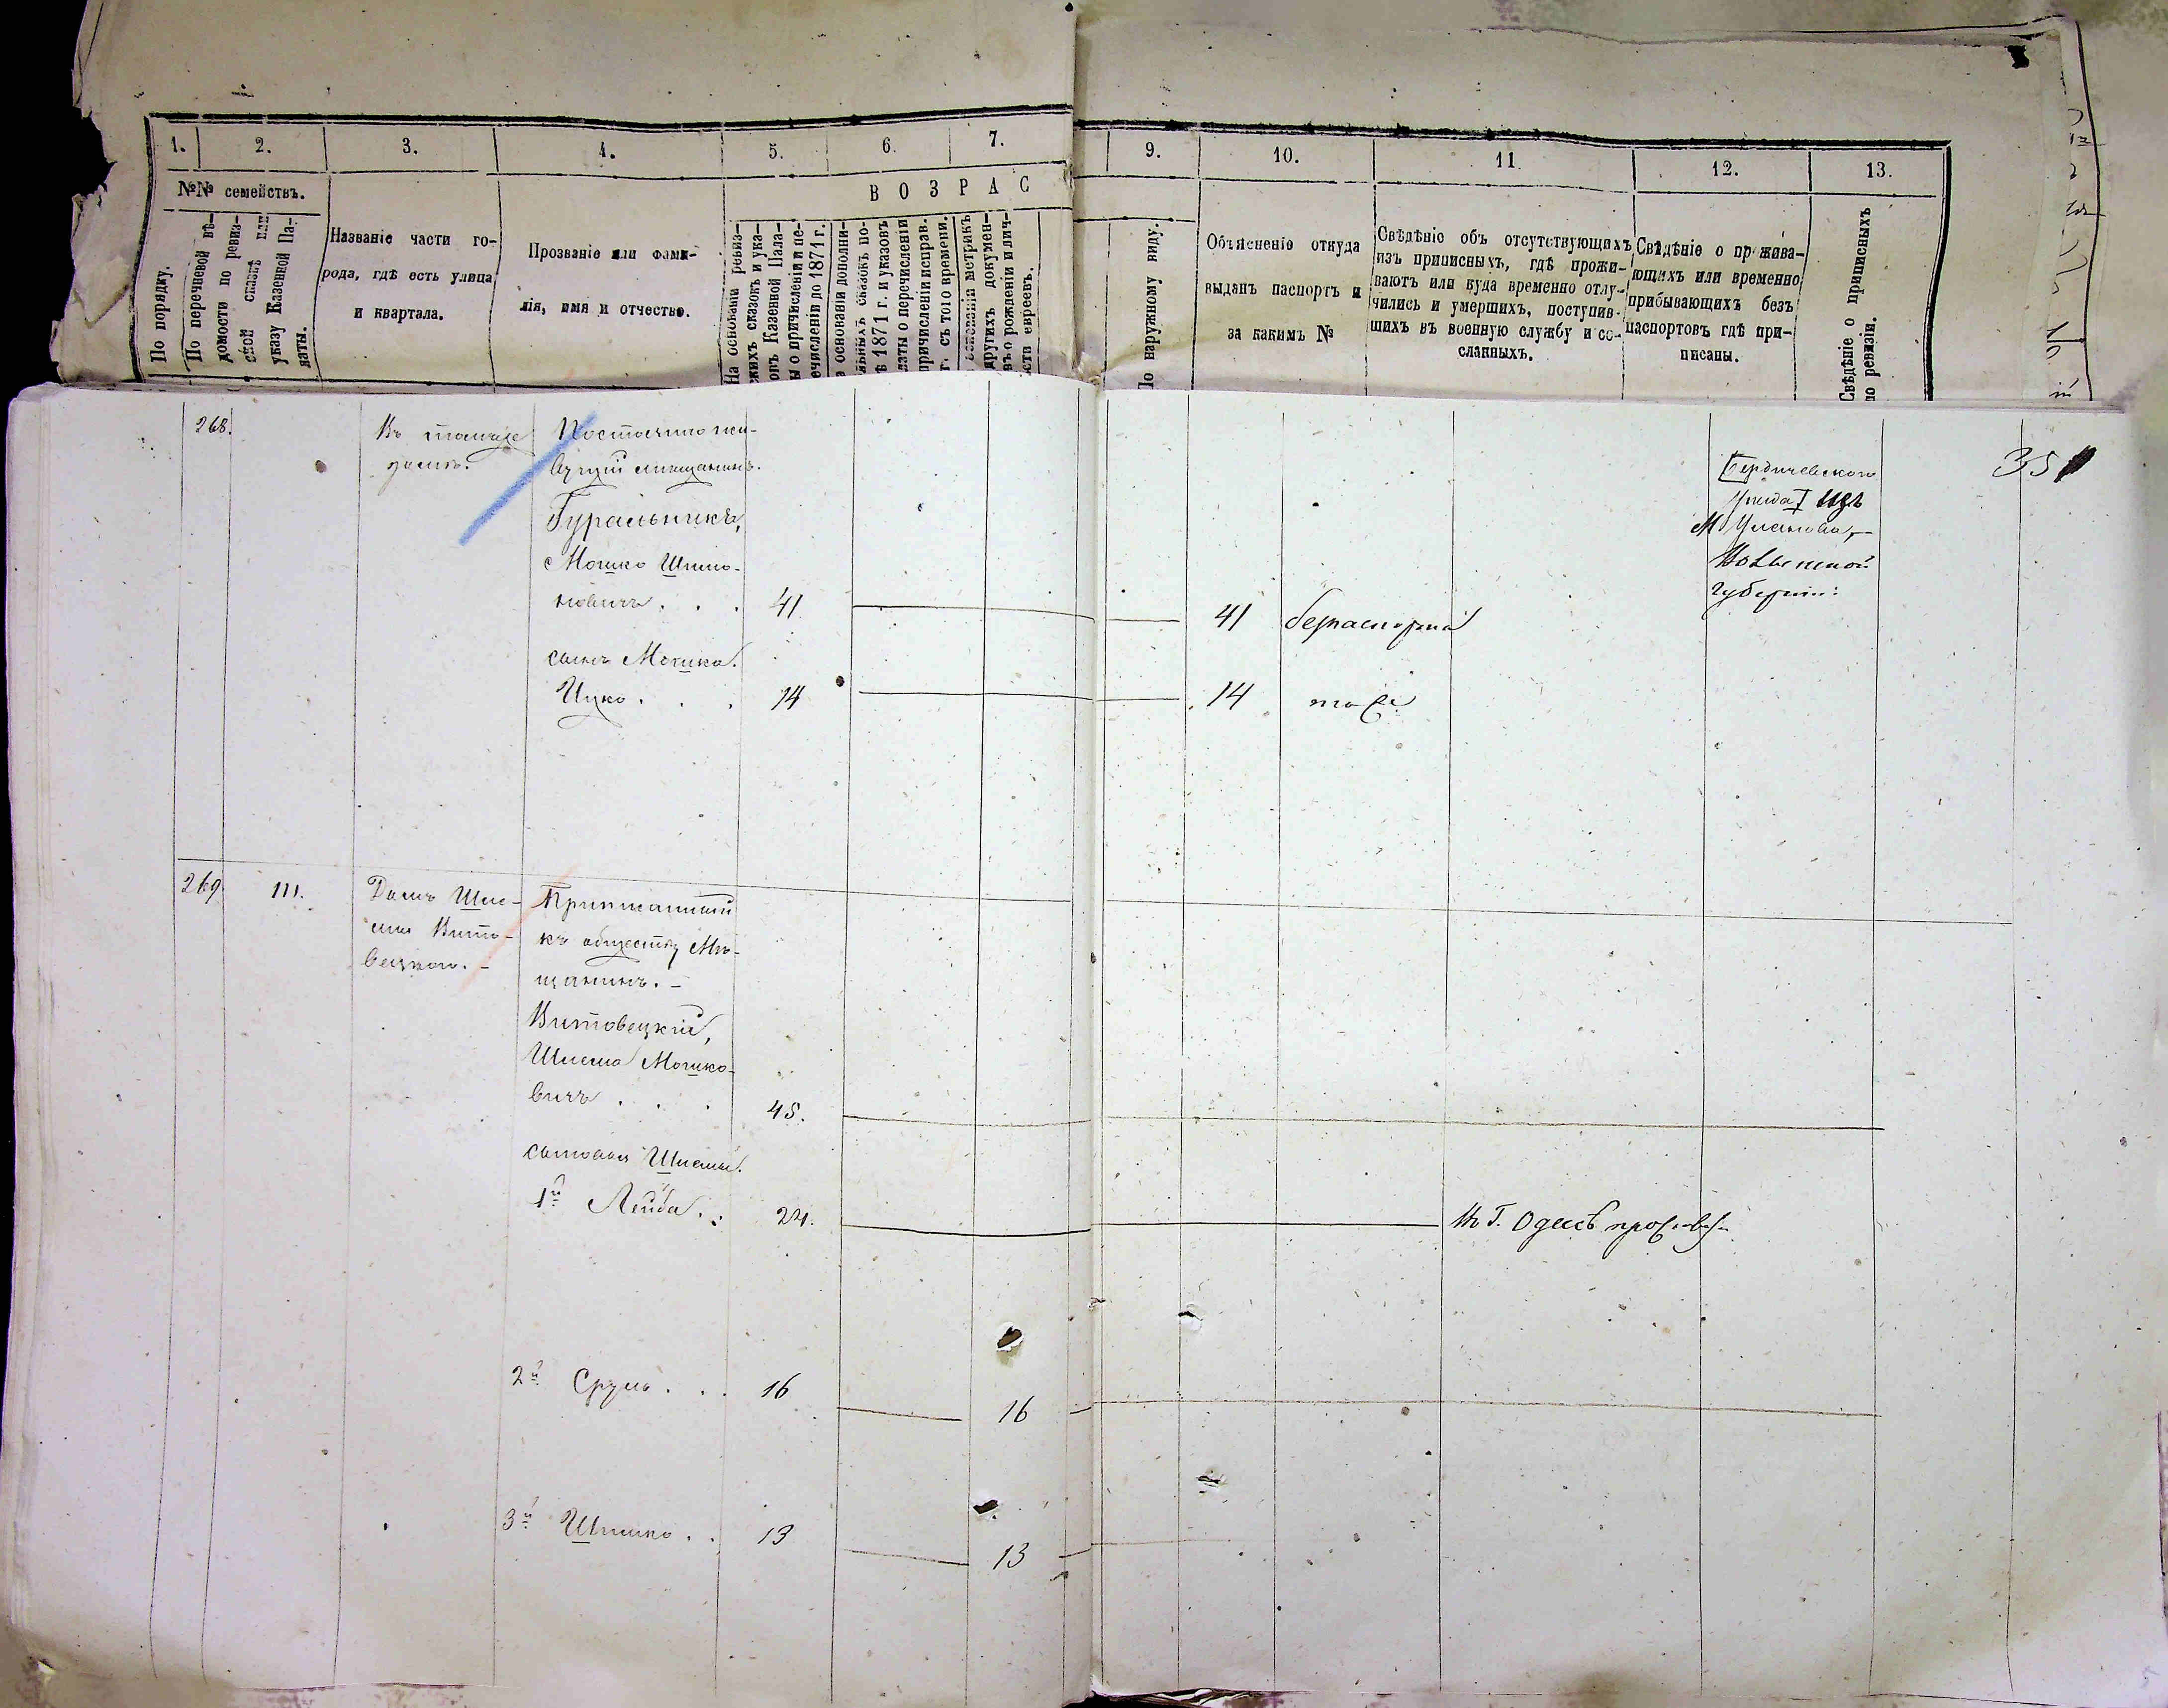 1. 2. 3. 4. 5. 6. 7. 9. 10. 11 12. 13.
№№ семействъ.
ВОЗРАС
По порядку.
По перечневой вѣ-
домости по ревиз-
ской сказкѣ или
указу Казенной Па-
латы.
Названіе части го-
рода, гдѣ есть улица
и квартала.
Прозваніе или фами-
лія, имя и отчество.
На основаніи ревиз-
скихъ сказокъ и ука-
овъ Казенной Пала-
ы о причисленіи и пе-
ечисленіи до 1871 г.
основаніи дополни-
ельныхъ сказокъ по-
ѣ 1871 г. и указовъ
латы о перечисленіи
причисленіи исправ.
г. съ того времени.
основаніи метрикъ
другихъ докумен-
въ о рожденіи и лич-
сти евреевъ.
По наружному виду.
Объясненіе откуда
выданъ паспортъ и
за какимъ №
Свѣдѣніе объ отсутствующихъ
изъ приписныхъ, гдѣ прожи-
ваютъ или куда временно отлу-
чились и умершихъ, поступив-
шихъ въ военную службу и со-
сланныхъ.
Свѣдѣніе о прожива-
ющихъ или временно
прибывающихъ безъ
паспортовъ гдѣ при-
писаны.
Свѣдѣніе о приписныхъ
по ревизіи.
351
268.
Въ томъ же
домѣ.
Постоянно жи-
вущій мѣщанинъ.
Гуральникъ,
Мошко Шмио-
новичъ . . . 41. 41 безпаспортный
сынъ Мошка.
Ицко . . . 14 14 то же
Бердичевскаго
Уѣзда Изъ
М. Уланова,
Волынской
Губерніи:
269. 111.
Домъ Шле-
мы Вито-
вецкаго.
Приписанный
къ обществу Мѣ-
щанинъ. –
Витовецкій,
Шлема Мошко-
вичъ . . . 45.
сыновья Шлемы.
1й Лейба . . 24. Въ Г. Одессѣ прожив.
2й Сруль . . . 16 16
3й Шмико . . 13 13